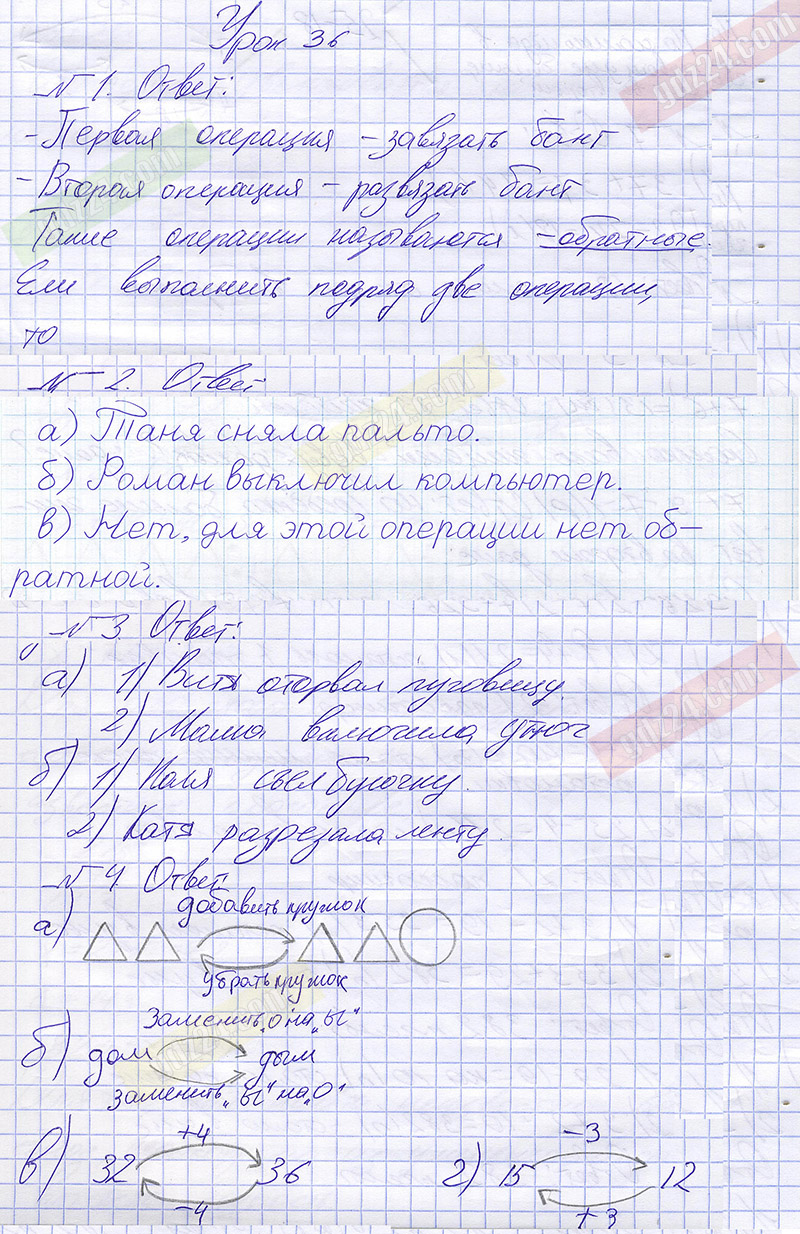 Урок 36
№ 1. Ответ:
- Первая операция - завязать бант
- Вторая операция - развязать бант
Такие операции называются - обратные.
Если выполнить подряд две операции,
то
№ 2. Ответ
а) Таня сняла пальто.
б) Роман выключил компьютер.
в) Нет, для этой операции нет об-
ратной.
№ 3. Ответ:
а) 1) Витя оторвал пуговицу
2) Мама включила утюг
б) 1) Коля съел булочку.
2) Катя разрезала ленту.
№ 4. Ответ
добавить кружок
а)
убрать кружок
Заменить „о" на „ы"
б) дом дым
заменить „ы" на „о"
+4 -3
в) 32 36 г) 15 12
-4 +3
gdz24.com
gdz24.com
gdz24.com